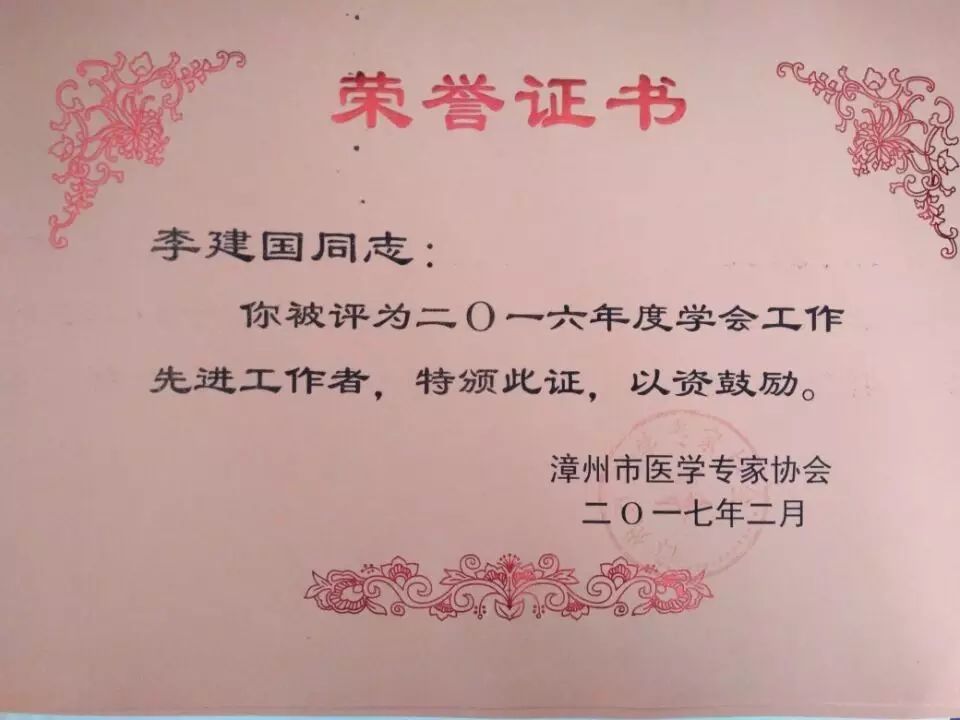 荣誉证书
李建国同志：
你被评为二O一六年度学会工作
先进工作者，特颁此证，以资鼓励。
漳州市医学专家协会
二O一七年二月